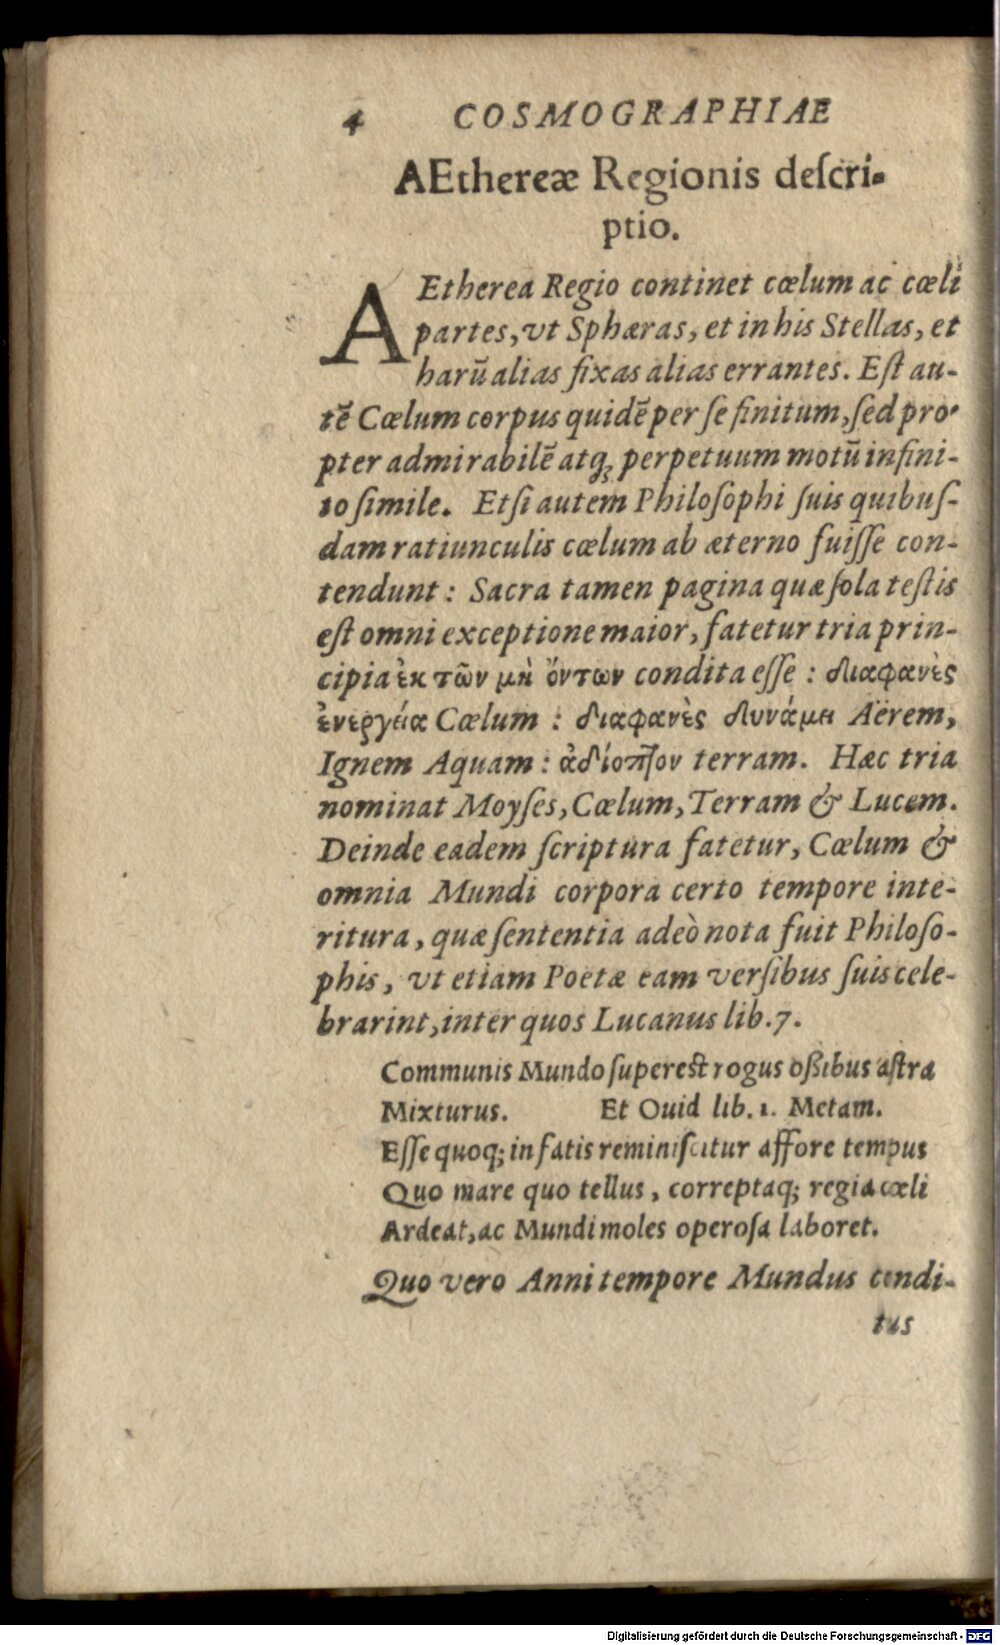 4 COSMOGRAPHIAE
AEthereæ Regionis deſcri-
ptio.
AEtherea Regio continet cœlum ac cœli
partes, vt Sphæras, et in his Stellas, et
harū alias fixas alias errantes. Eſt au-
tē Cœlum corpus quidē per ſe finitum, ſed pro-
pter admirabilē atq; perpetuum motū infini-
to ſimile. Etſi autem Philoſophi ſuis quibuſ-
dam ratiunculis cœlum ab æterno fuiſſe con-
tendunt: Sacra tamen pagina quæ ſola teſtis
eſt omni exceptione maior, fatetur tria prin-
cipia ἐκ τῶν μὴ ὄντων condita eſſe: διαφανὲς
ἐνεργείᾳ Cœlum: διαφανὲς δυνάμει Aërem,
Ignem Aquam: ἀδίοπτον terram. Hæc tria
nominat Moyſes, Cœlum, Terram & Lucem.
Deinde eadem ſcriptura fatetur, Cœlum &
omnia Mundi corpora certo tempore inte-
ritura, quæ ſententia adeò nota fuit Philoſo-
phis, vt etiam Poetæ eam verſibus ſuis cele-
brarint, inter quos Lucanus lib. 7.
Communis Mundo ſupereſt rogus oßibus aſtra
Mixturus. Et Ouid lib. 1. Metam.
Eſſe quoq; in fatis reminiſcitur affore tempus
Quo mare quo tellus, correptaq; regia cœli
Ardeat, ac Mundi moles operoſa laboret.
Quo vero Anni tempore Mundus condi-
tus
Digitalisierung gefördert durch die Deutsche Forschungsgemeinschaft - DFG